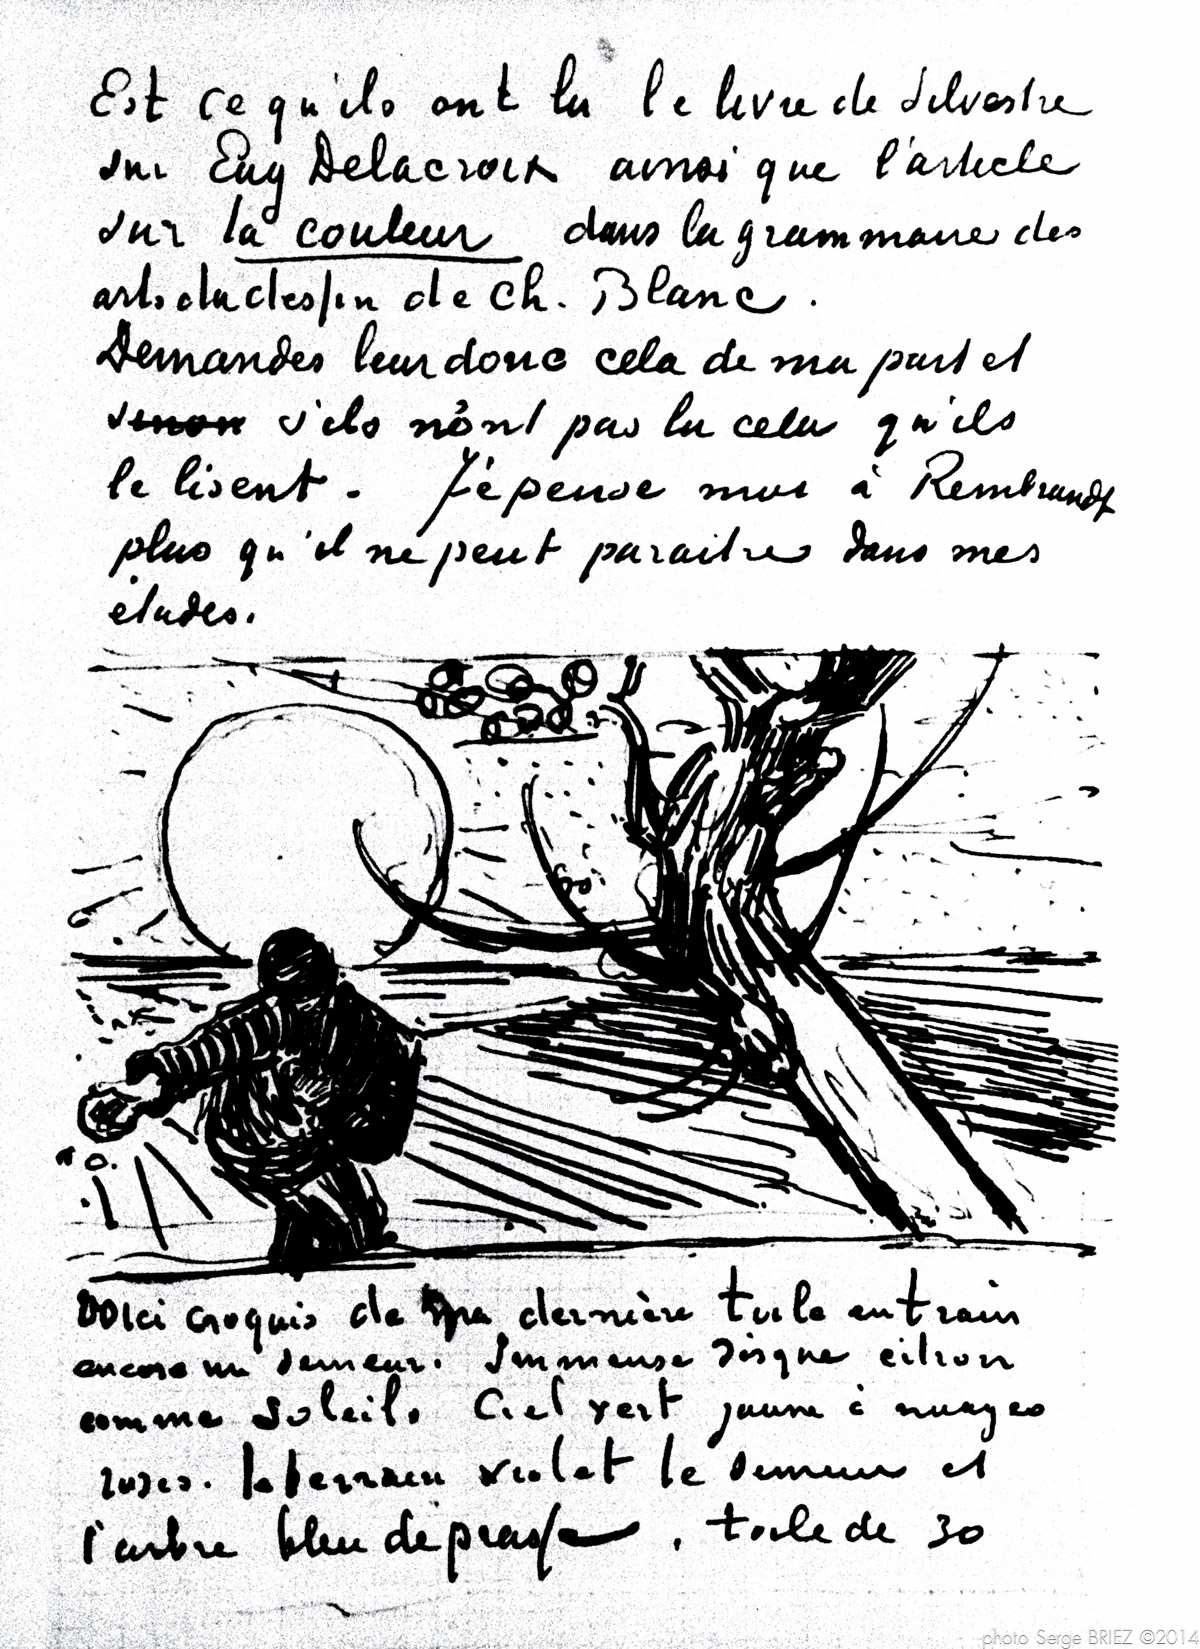 Est ce qu'ils ont lu le livre de Silvestre
sur Eug Delacroix ainsi que l'article
sur la couleur dans la grammaire des
arts du dessin de Ch. Blanc.
Demandes leur donc cela de ma part et
sinon s'ils n'ont pas lu cela qu'ils
le lisent. Je pense moi à Rembrandt
plus qu'il ne peut paraitre dans mes
études.
Voici croquis de ma dernière toile en train
encore un semeur. Immense disque citron
comme soleil. Ciel vert jaune à nuages
roses. le terrain violet le semeur et
l'arbre bleu de prusse. toile de 30
photo Serge BRIEZ ©2014